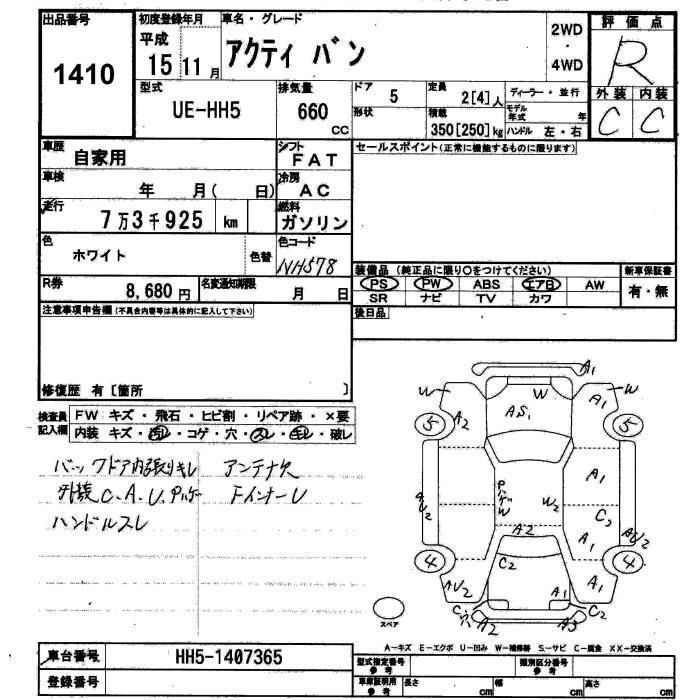 出品番号
1410
初度登録年月
平成
15 11 月
車名・グレード
アクティ バン
2WD
4WD
評価点
R
外装 内装
C C
型式
UE-HH5
排気量
660
cc
ドア
5
形状
定員
2[4]人
積載
350[250]kg
ディーラー・並行
モデル年式 年
ハンドル 左・右
車歴
自家用
シフト
FAT
車検
年 月( 日)
冷房
AC
走行
7万3千925 km
燃料
ガソリン
色
ホワイト
色替
色コード
NH578
R券
8,680円
名変通知期限
月 日
セールスポイント(正常に機能するものに限ります)
装備品 (純正品に限り○をつけてください)
PS PW ABS エアB AW
SR ナビ TV カワ
新車保証書
有・無
後日品
注意事項申告欄(不具合内容等は具体的に記入して下さい)
修復歴 有〔箇所 〕
検査員
記入欄
FW キズ・飛石・ヒビ割・リペア跡・×要
内装 キズ・汚レ・コゲ・穴・スレ・キレ・破レ
バックドア内張りキレ アンテナ欠
外装C.A.U.Pハゲ FインナーU
ハンドルスレ
A1
W W W
A1
AS1
5 A2 5
A1
Pハゲ W
W2
C2
AU2
AU2
A2
A1
C2
4 4
AU2
A1
A1
C穴
C2
A2
A3
スペア
A─キズ E─エクボ U─凹み W─補修跡 S─サビ C─腐食 XX─交換済
車台番号
HH5-1407365
登録番号
型式指定番号
参考
類別区分番号
参考
車庫証明用
参考
長さ cm
幅 cm
高さ cm